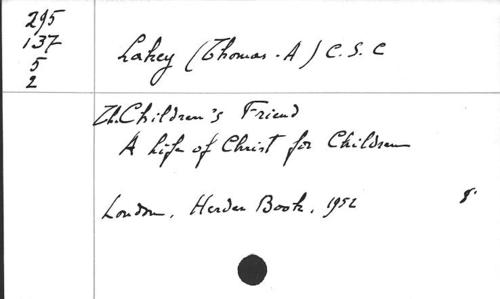 295
137
5
2
Lahey (Thomas - A) C.S.C
Th. Children's Friend
A life of Christ for Children
London, Herder Book, 1952 8°